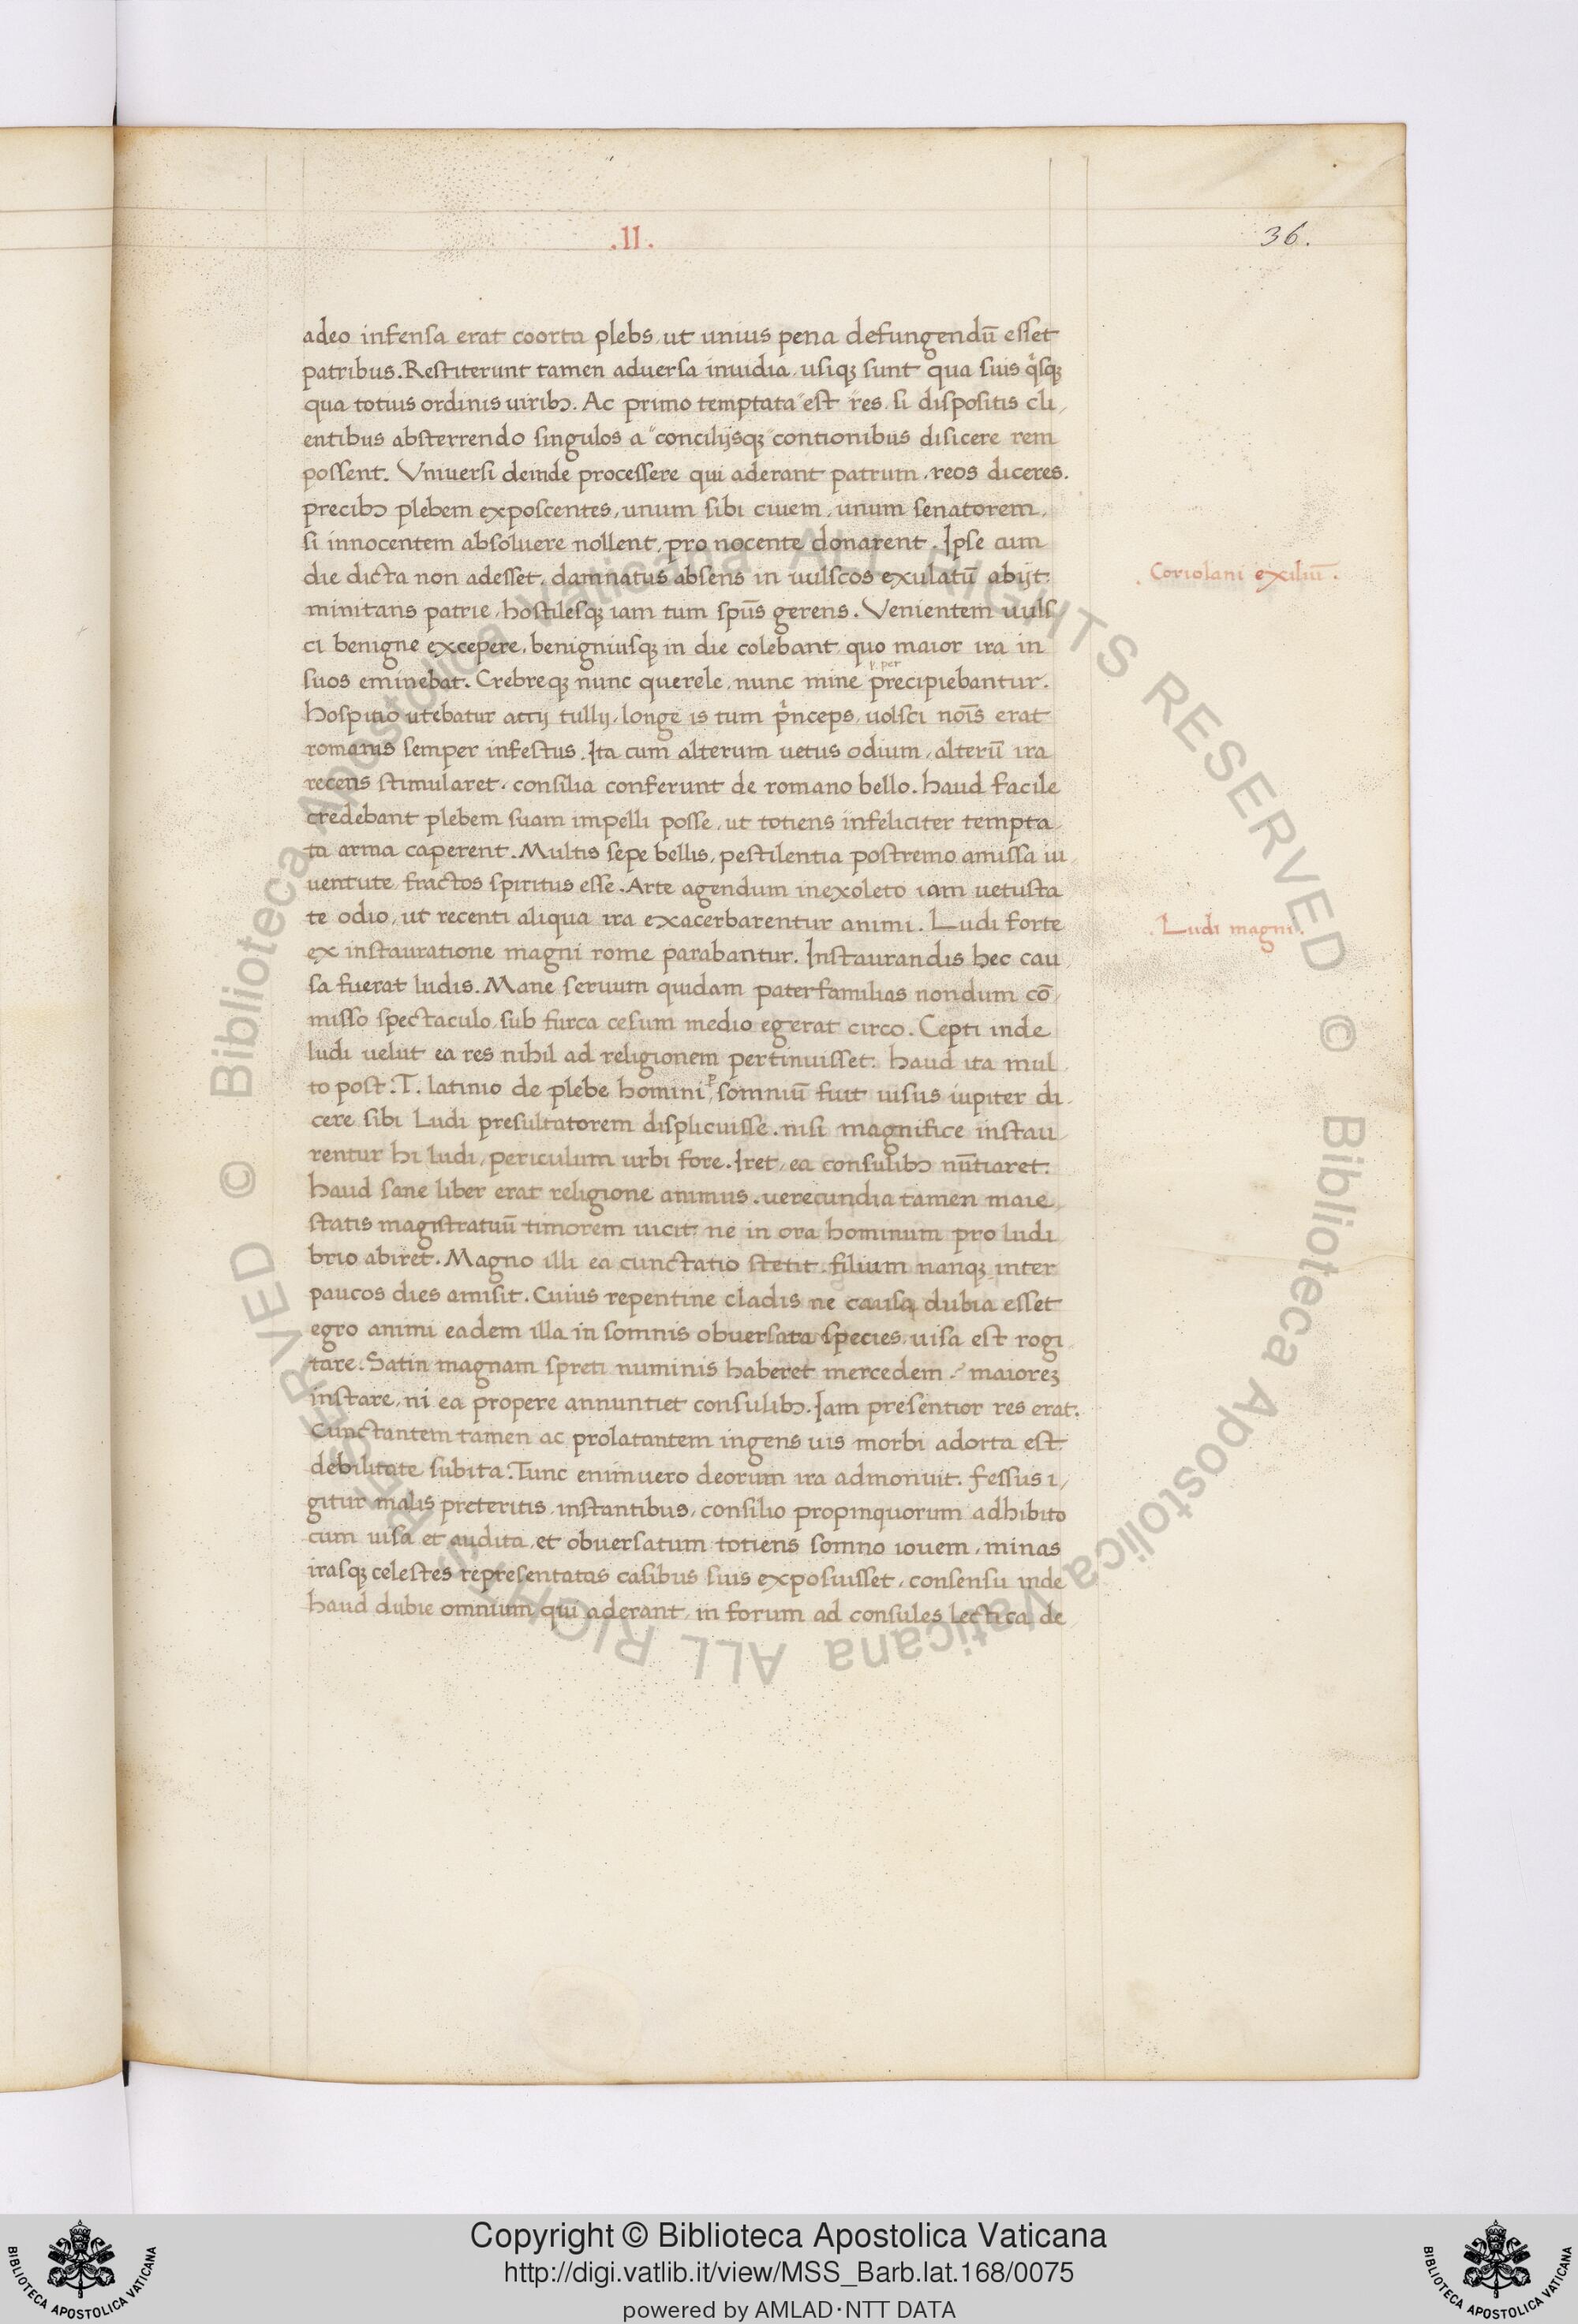 .II.
36.
adeo infensa erat coorta plebs, ut unius pena defungendū esset
patribus. Restiterunt tamen aduersa inuidia, usiqꝫ sunt qua suis qͥsqꝫ
qua totius ordinis uiribꝰ. Ac primo temptata " est " res, si dispositis cli,
entibus absterrendo singulos a " concilijsqꝫ " contionibus disicere rem
possent. Vniuersi deinde processere qui aderant patrum, reos diceres.
precibꝰ plebem exposcentes, unum sibi ciuem, unum senatorem,
si innocentem absoluere nollent, pro nocente donarent. Ipse cum
die dicta non adesset, damnatus absens in uulscos exulatū abijt.
Coriolani exiliū.
minitans patrie, hostilesqꝫ iam tum spūs gerens. Venientem uuls
ci benigne excepere, benigniusqꝫ in die colebant, quo maior ira in
suos eminebat. Crebreqꝫ nunc querele, nunc mine precipiebantur.
hospitio utebatur attij tullij, longe is tum pͥnceps, uolsci noīs erat
romanis semper infestus. Ita cum alterum uetus odium, alterū ira
recens stimularet, consilia conferunt de romano bello. haud facile
credebant plebem suam impelli posse, ut totiens infeliciter tempta,
ta arma caperent. Multis sepe bellis, pestilentia postremo amissa iu,
uentute, fractos spiritus esse. Arte agendum inexoleto iam uetusta
te odio, ut recenti aliqua ira exacerbarentur animi. Ludi forte
. Ludi magni.
ex instauratione magni rome parabantur. Instaurandis hec cau
sa fuerat ludis. Mane seruum quidam paterfamilias nondum cō,
misso spectaculo sub furca cesum medio egerat circo. Cepti inde
ludi uelut ea res nihil ad religionem pertinuisset. haud ita mul
to post. T. latinio de plebe homini, somniū fuit uisus iupiter di,
cere sibi Ludi presultatorem displicuisse. nisi magnifice instau,
rentur hi ludi, periculum urbi fore. Iret, ea consulibꝰ nūtiaret.
haud sane liber erat religione animus. uerecundia tamen maie,
statis magistratuū timorem uicit, ne in ora hominum pro ludi
brio abiret. Magno illi ea cunctatio stetit. filium nanqꝫ inter
paucos dies amisit. Cuius repentine cladis ne causa dubia esset
egro animi eadem illa in somnis obuersata species, uisa est rogi,
tare. Satin magnam spreti numinis haberet mercedem. maioreꝫ
instare, ni ea propere annuntiet consulibꝰ. Iam presentior res erat.
Cunctantem tamen ac prolatantem ingens uis morbi adorta est.
debilitate subita. Tunc enimuero deorum ira admonuit. fessus i,
gitur malis preteritis, instantibus, consilio propinquorum adhibito
cum uisa et audita, et obuersatum totiens somno iouem, minas
irasqꝫ celestes representatas casibus suis exposuisset, consensu inde
haud dubie omnium, qui aderant, in forum ad consules lectica de
© Biblioteca Apostolica Vaticana ALL RIGHTS RESERVED © Biblioteca Apostolica Vaticana ALL RIGHTS RESERVED
Copyright © Biblioteca Apostolica Vaticana
http://digi.vatlib.it/view/MSS_Barb.lat.168/0075
powered by AMLAD·NTT DATA
BIBLIOTECA APOSTOLICA VATICANA
BIBLIOTECA APOSTOLICA VATICANA